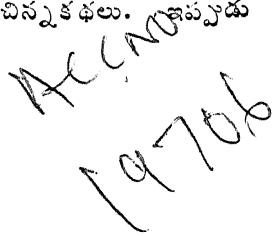 చిన్నకథలు. ఇప్పుడు
Acc No
19706